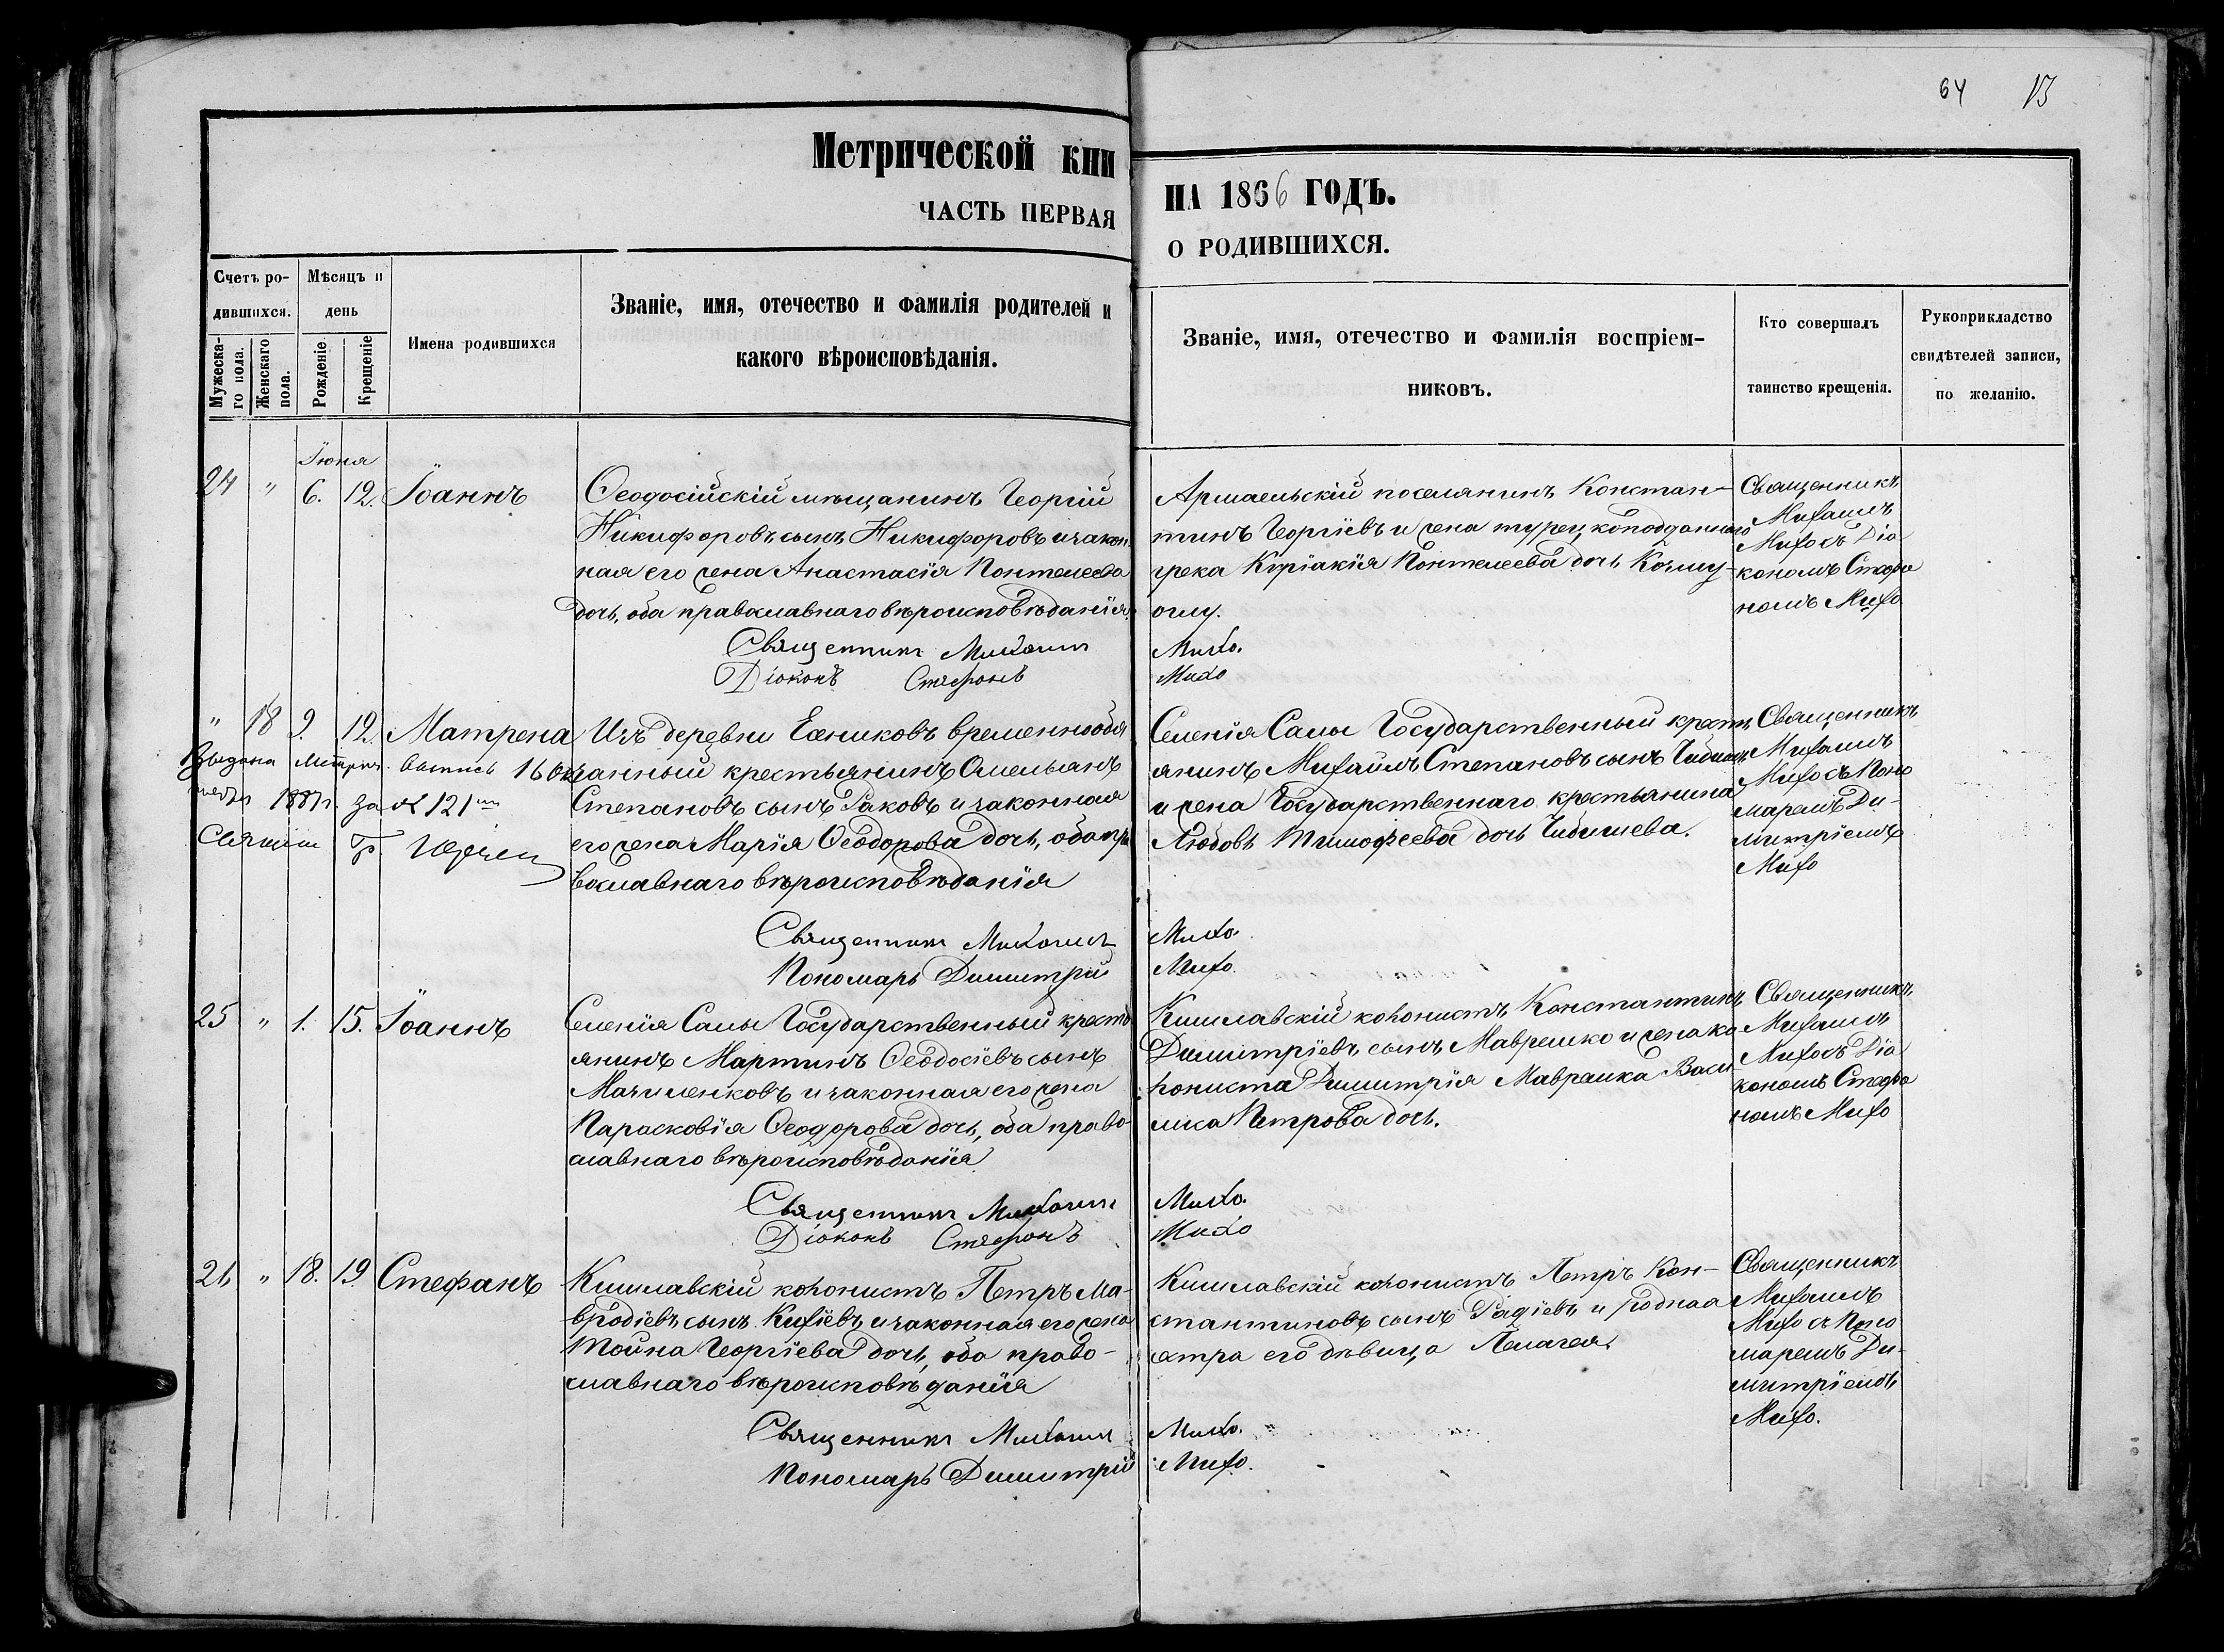 64 13
Метрической кни
ЧАСТЬ ПЕРВАЯ
НА 1866 ГОДЪ.
О РОДИВШИХСЯ.
Счетъ ро-
дившихся.
Мужеска-
го пола.
Женскаго
пола.
Мѣсяцъ и
день
Рожденіе.
Крещеніе
Имена родившихся
Званіе, имя, отечество и фамилія родителей и
какого вѣроисповѣданія.
Званіе, имя, отечество и фамилія воспріем-
никовъ.
Кто совершалъ
таинство крещенія.
Рукоприкладство
свидѣтелей записи,
по желанію.
Іюня
24 " 6. 12. Іоаннъ
Ѳеодосійскій мѣщанинъ Георгій
Никифоровъ сынъ Никифоровъ и закон-
ная его жена Анастасія Понтелеева
дочь, оба православнаго вѣроисповѣданія.
Священникъ Михаилъ
Діаконъ Стефанъ
Армаельскій поселянинъ Констан-
тинъ Георгіевъ и жена турецкоподданнаго
грека Киріакія Понтелеева дочь
оглу.
Михо.
Михо
Священникъ
Михаилъ
Михо съ Діа
кономъ Стефа
номъ Михо
" 18 9. 12. Матрена
Изъ деревни временнообя
занный крестьянинъ Омельянъ
Степановъ сынъ Раковъ и законная
его жена Марія Ѳеодорова дочь, оба пра
вославнаго вѣроисповѣданія
Священникъ Михаилъ
Пономарь Димитрій
Выдана метрич. выпись 16 ок
1887 г. за № 121
Селенія Салы Государственный крест
янинъ Михаилъ Степановъ сынъ
и жена Государственнаго крестьянина
Любовь Тимофеева дочь Чибишева.
Михо.
Михо.
Священникъ
Михаилъ
Михо съ Поно
маремъ Ди-
митріемъ
Михо
25 " 1. 15. Іоаннъ
Селенія Салы Государственный кресть
янинъ Мартинъ Ѳеодосіевъ сынъ
и законная его жена
Парасковія Ѳеодорова дочь, оба право-
славнаго вѣроисповѣданія.
Священникъ Михаилъ
Діаконъ Стефанъ
Кишлавскій колонистъ Константинъ
Димитріевъ сынъ и жена ко
лониста Димитрія Мавраика Васи-
лика Петрова дочь.
Михо.
Михо
Священникъ
Михаилъ
Михо съ Діа
кономъ Стефа
номъ Михо
" 18. 19 Стефанъ
Кишлавскій колонистъ Петръ Ма-
вродіевъ сынъ и законная его жена
Тойна Георгіева дочь, оба право-
славнаго вѣроисповѣданія
Священникъ Михаилъ
Пономарь Димитрій
Кишлавскій колонистъ Петръ Кон-
стантиновъ сынъ Радіевъ и родная
сестра его дѣвица Пелагея.
Михо.
Михо.
Священникъ
Михаилъ
Михо съ Поно
маремъ Ди-
митріемъ
Михо.